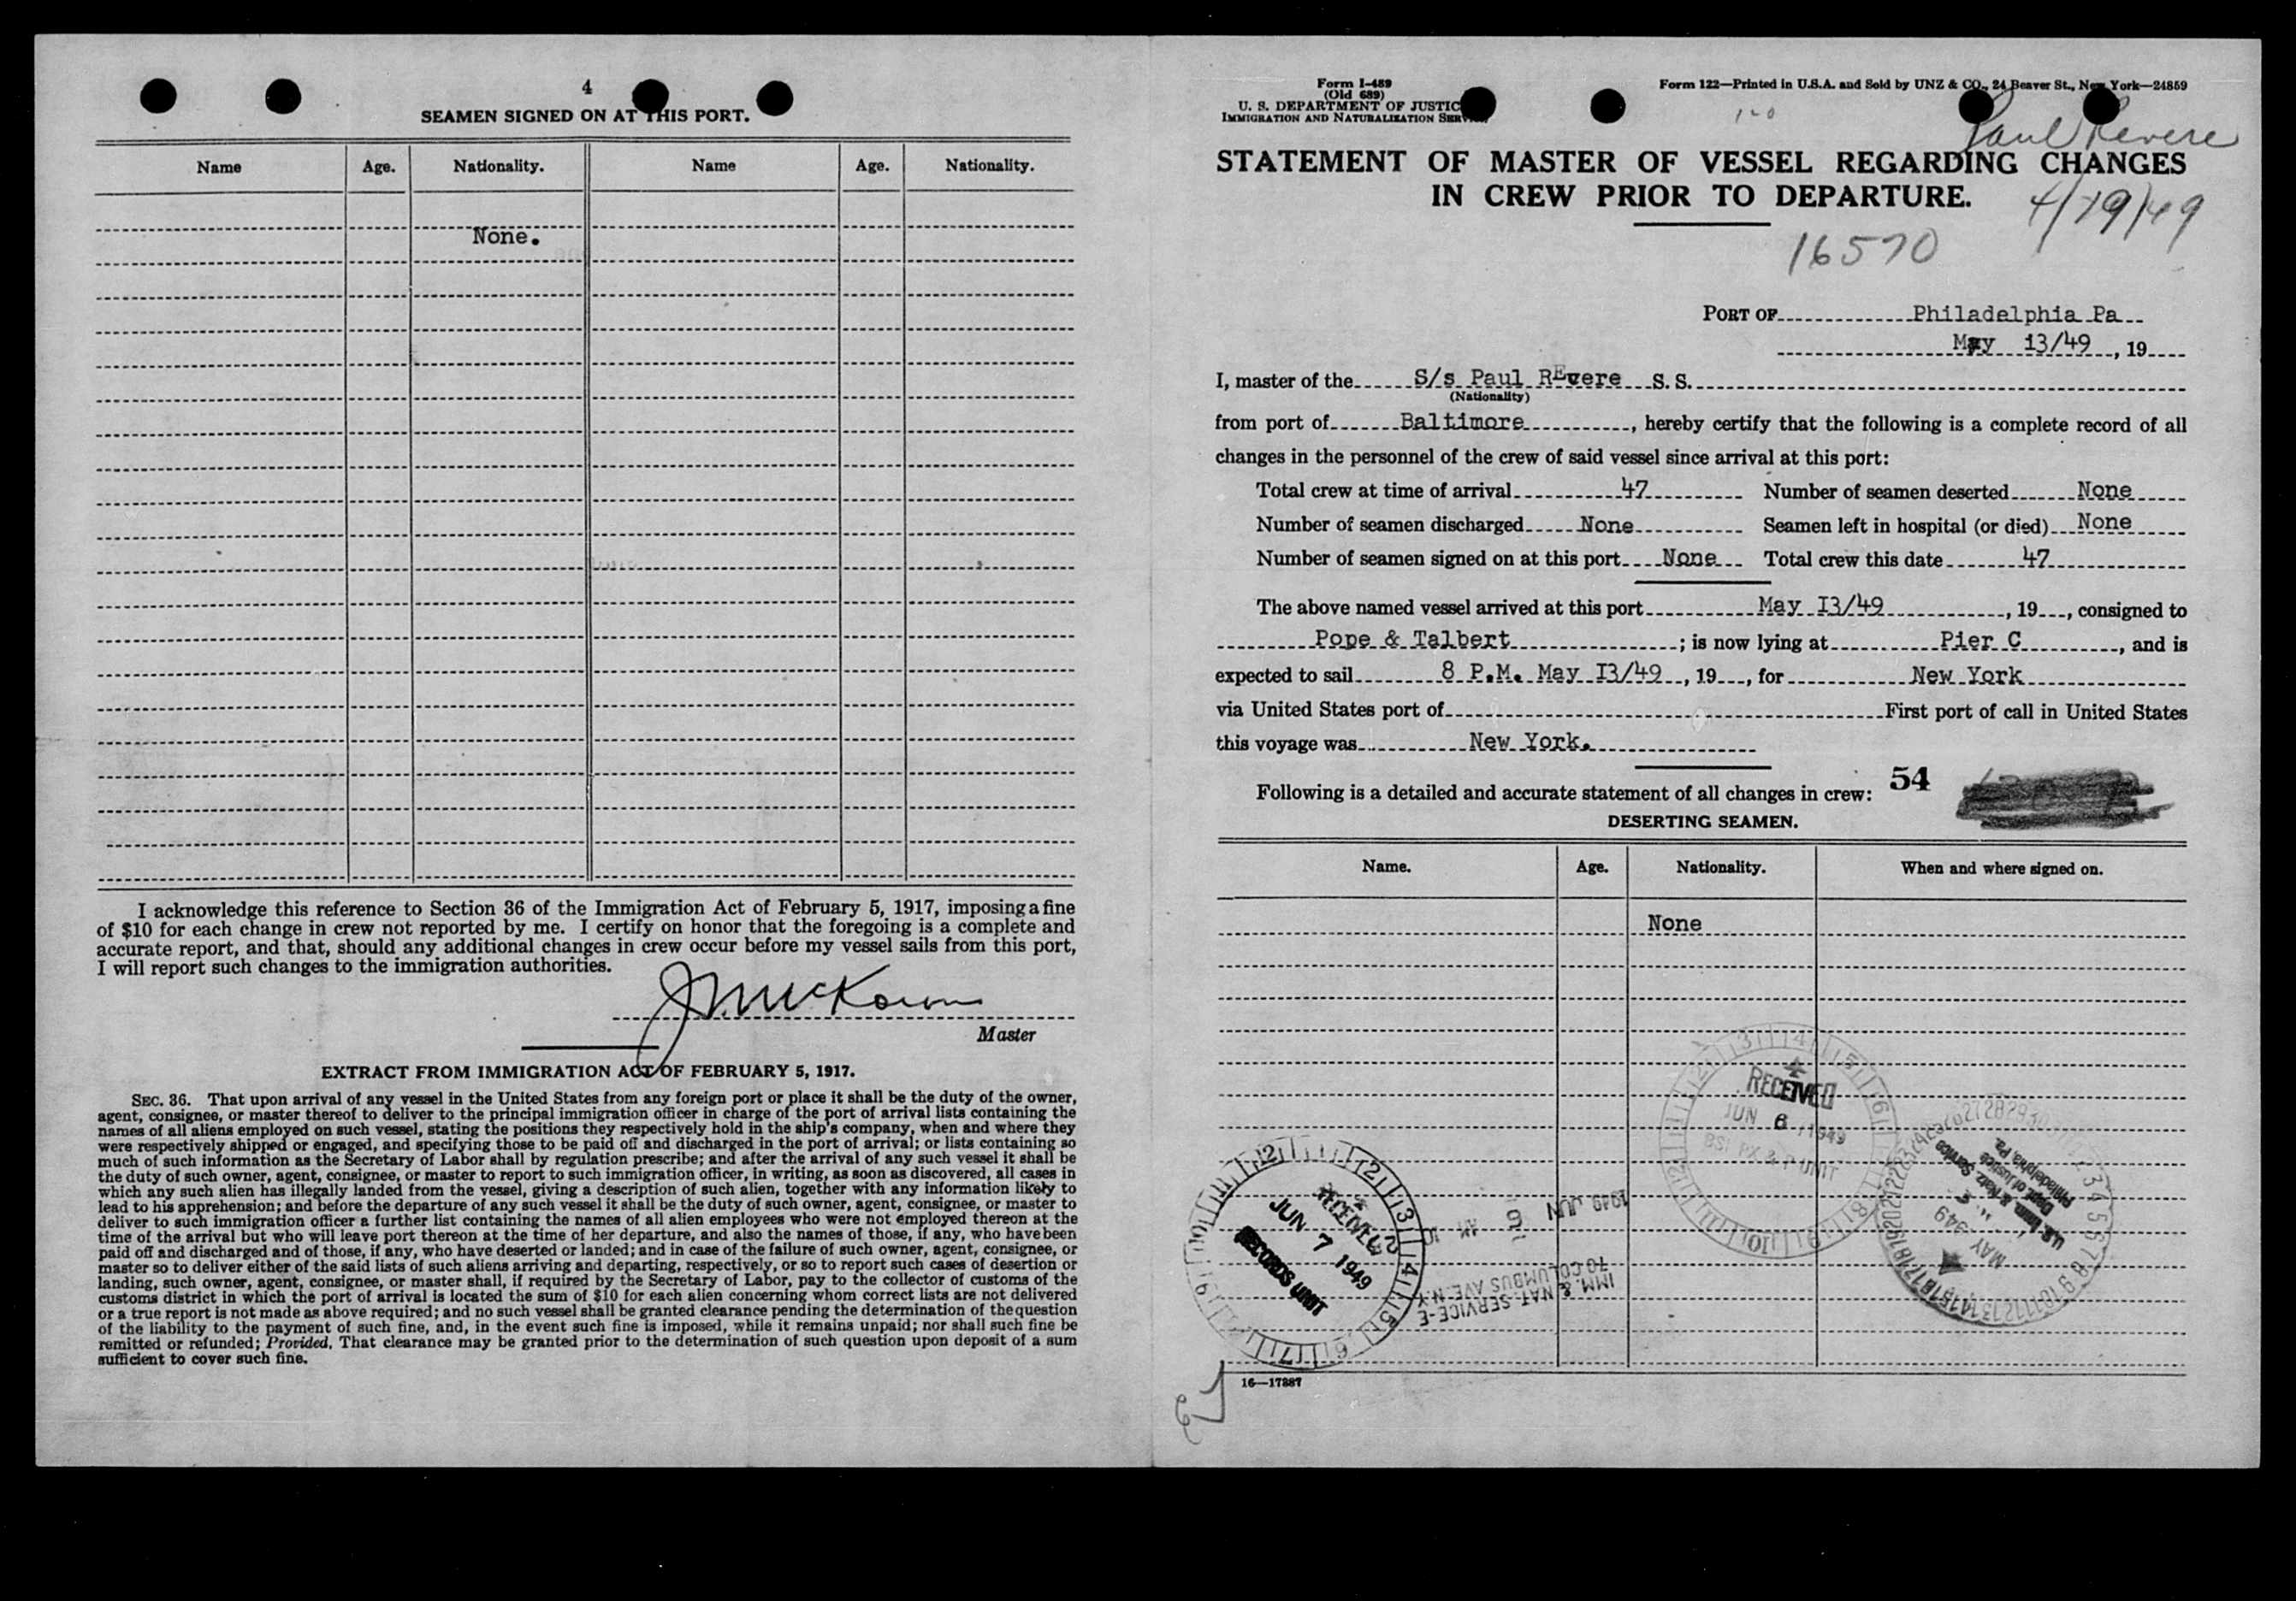 4
SEAMEN SIGNED ON AT THIS PORT.
Name Age. Nationality. Name Age. Nationality.
None.
I acknowledge this reference to Section 36 of the Immigration Act of February 5, 1917, imposing a fine
of $10 for each change in crew not reported by me. I certify on honor that the foregoing is a complete and
accurate report, and that, should any additional changes in crew occur before my vessel sails from this port,
I will report such changes to the immigration authorities.
Master
EXTRACT FROM IMMIGRATION ACT OF FEBRUARY 5, 1917.
SEC. 36. That upon arrival of any vessel in the United States from any foreign port or place it shall be the duty of the owner,
agent, consignee, or master thereof to deliver to the principal immigration officer in charge of the port of arrival lists containing the
names of all aliens employed on such vessel, stating the positions they respectively hold in the ship's company, when and where they
were respectively shipped or engaged, and specifying those to be paid off and discharged in the port of arrival; or lists containing so
much of such information as the Secretary of Labor shall by regulation prescribe; and after the arrival of any such vessel it shall be
the duty of such owner, agent, consignee, or master to report to such immigration officer, in writing, as soon as discovered, all cases in
which any such alien has illegally landed from the vessel, giving a description of such alien, together with any information likely to
lead to his apprehension; and before the departure of any such vessel it shall be the duty of such owner, agent, consignee, or master to
deliver to such immigration officer a further list containing the names of all alien employees who were not employed thereon at the
time of the arrival but who will leave port thereon at the time of her departure, and also the names of those, if any, who have been
paid off and discharged and of those, if any, who have deserted or landed; and in case of the failure of such owner, agent, consignee, or
master so to deliver either of the said lists of such aliens arriving and departing, respectively, or so to report such cases of desertion or
landing, such owner, agent, consignee, or master shall, if required by the Secretary of Labor, pay to the collector of customs of the
customs district in which the port of arrival is located the sum of $10 for each alien concerning whom correct lists are not delivered
or a true report is not made as above required; and no such vessel shall be granted clearance pending the determination of the question
of the liability to the payment of such fine, and, in the event such fine is imposed, while it remains unpaid; nor shall such fine be
remitted or refunded; Provided, That clearance may be granted prior to the determination of such question upon deposit of a sum
sufficient to cover such fine.
Form I-489
(Old 689)
U. S. DEPARTMENT OF JUSTICE
IMMIGRATION AND NATURALIZATION SERVICE
Form 122—Printed in U.S.A. and Sold by UNZ & CO., 24 Beaver St., New York—24859
Paul Revere
STATEMENT OF MASTER OF VESSEL REGARDING CHANGES
IN CREW PRIOR TO DEPARTURE.
4/19/49
16570
PORT OF Philadelphia Pa
May 13/49, 19
I, master of the S/s Paul REvere S. S.
(Nationality)
from port of Baltimore, hereby certify that the following is a complete record of all
changes in the personnel of the crew of said vessel since arrival at this port:
Total crew at time of arrival 47 Number of seamen deserted None
Number of seamen discharged None Seamen left in hospital (or died) None
Number of seamen signed on at this port None Total crew this date 47
The above named vessel arrived at this port May I3/49, 19, consigned to
Pope & Talbert; is now lying at Pier C, and is
expected to sail 8 P.M. May I3/49, 19, for New York
via United States port of First port of call in United States
this voyage was New York.
Following is a detailed and accurate statement of all changes in crew: 54
DESERTING SEAMEN.
Name. Age. Nationality. When and where signed on.
None
RECEIVED
JUN 6 1949
BSI PX & P UNIT
U.S. Imm. & Natz Service
Dept. of Justice
Philadelphia Pa.
MAY 1949
RECEIVED
JUN 7 1949
RECORDS UNIT
1949 JUN 6 AM 10
IMM. & NAT. SERVICE-E
70 COLUMBUS AVE. N.Y.
16—17887